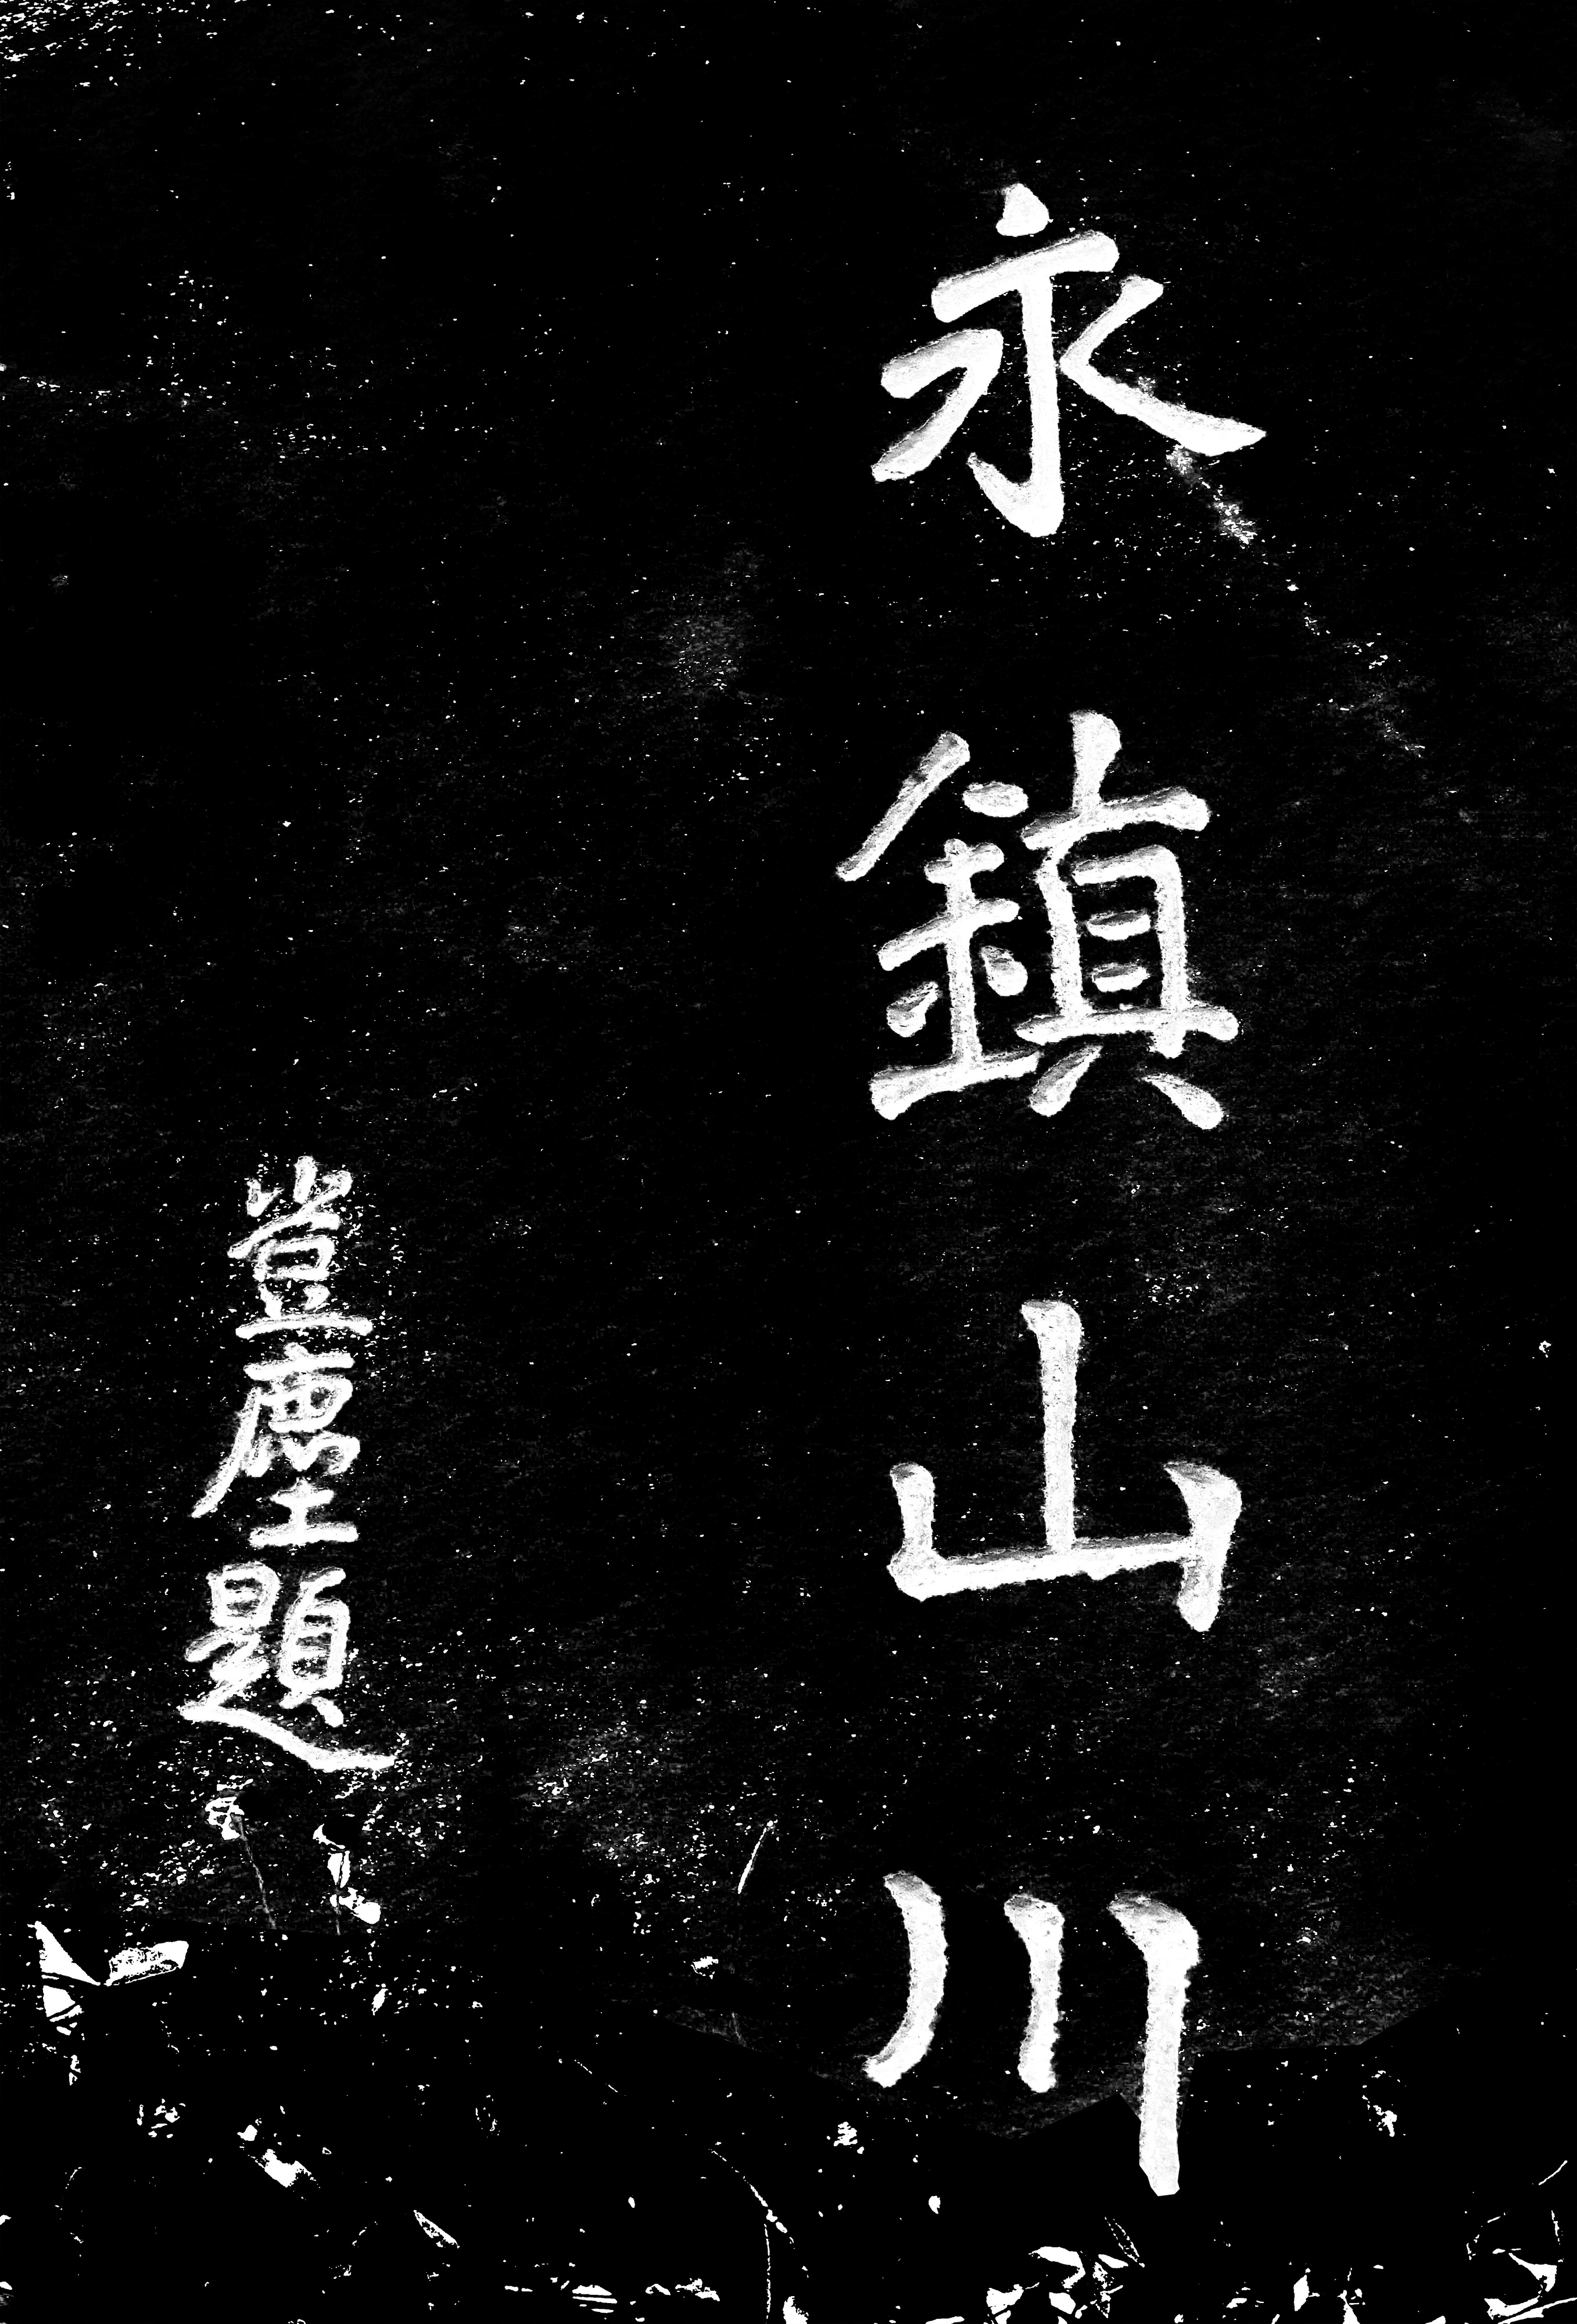 永鎮山川
豈塵題